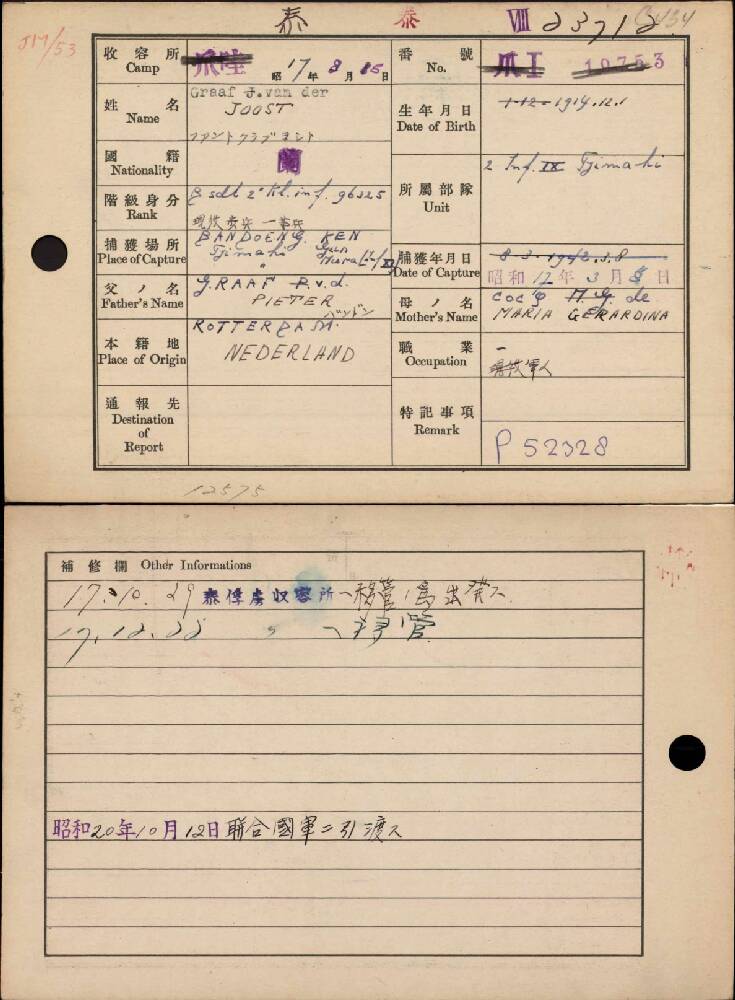 泰 泰 VIII 23712
JM/53
收容所 Camp 爪哇 昭17年8月15日
番號 No. 爪I 10753
姓名 Name Graaf J.van der
JOOST
生年月日 Date of Birth 1-12-1914.12.1
國籍 Nationality 蘭
階級身分 Rank
現役 一等兵
所屬部隊 Unit 2 Inf. IX Tjimahi
捕獲場所 Place of Capture BANDOENG. KEN
Tjimahi
捕獲年月日 Date of Capture 8-3-1942.3.8
昭和17年3月8日
父ノ名 Father's Name G.RAAF P.v.d.
PIETER
母ノ名 Mother's Name COCQ M.G. de
MARIA GERARDINA
本籍地 Place of Origin ROTTERDAM.
NEDERLAND
職業 Occupation 一
現役軍人
通報先 Destination of Report
特記事項 Remark P 52328
12575
補修欄 Other Informations
17.10.29 泰俘虜収容所ヘ移管ノ為出発ス
〃 ヘ移管
昭和20年10月12日聯合國軍ニ引渡ス